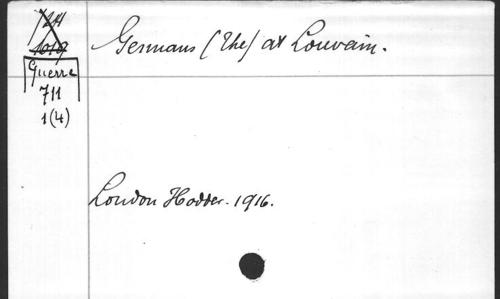 Germans (The) at Louvain.
Guerre
711
1(4)
London Hodder. 1916.